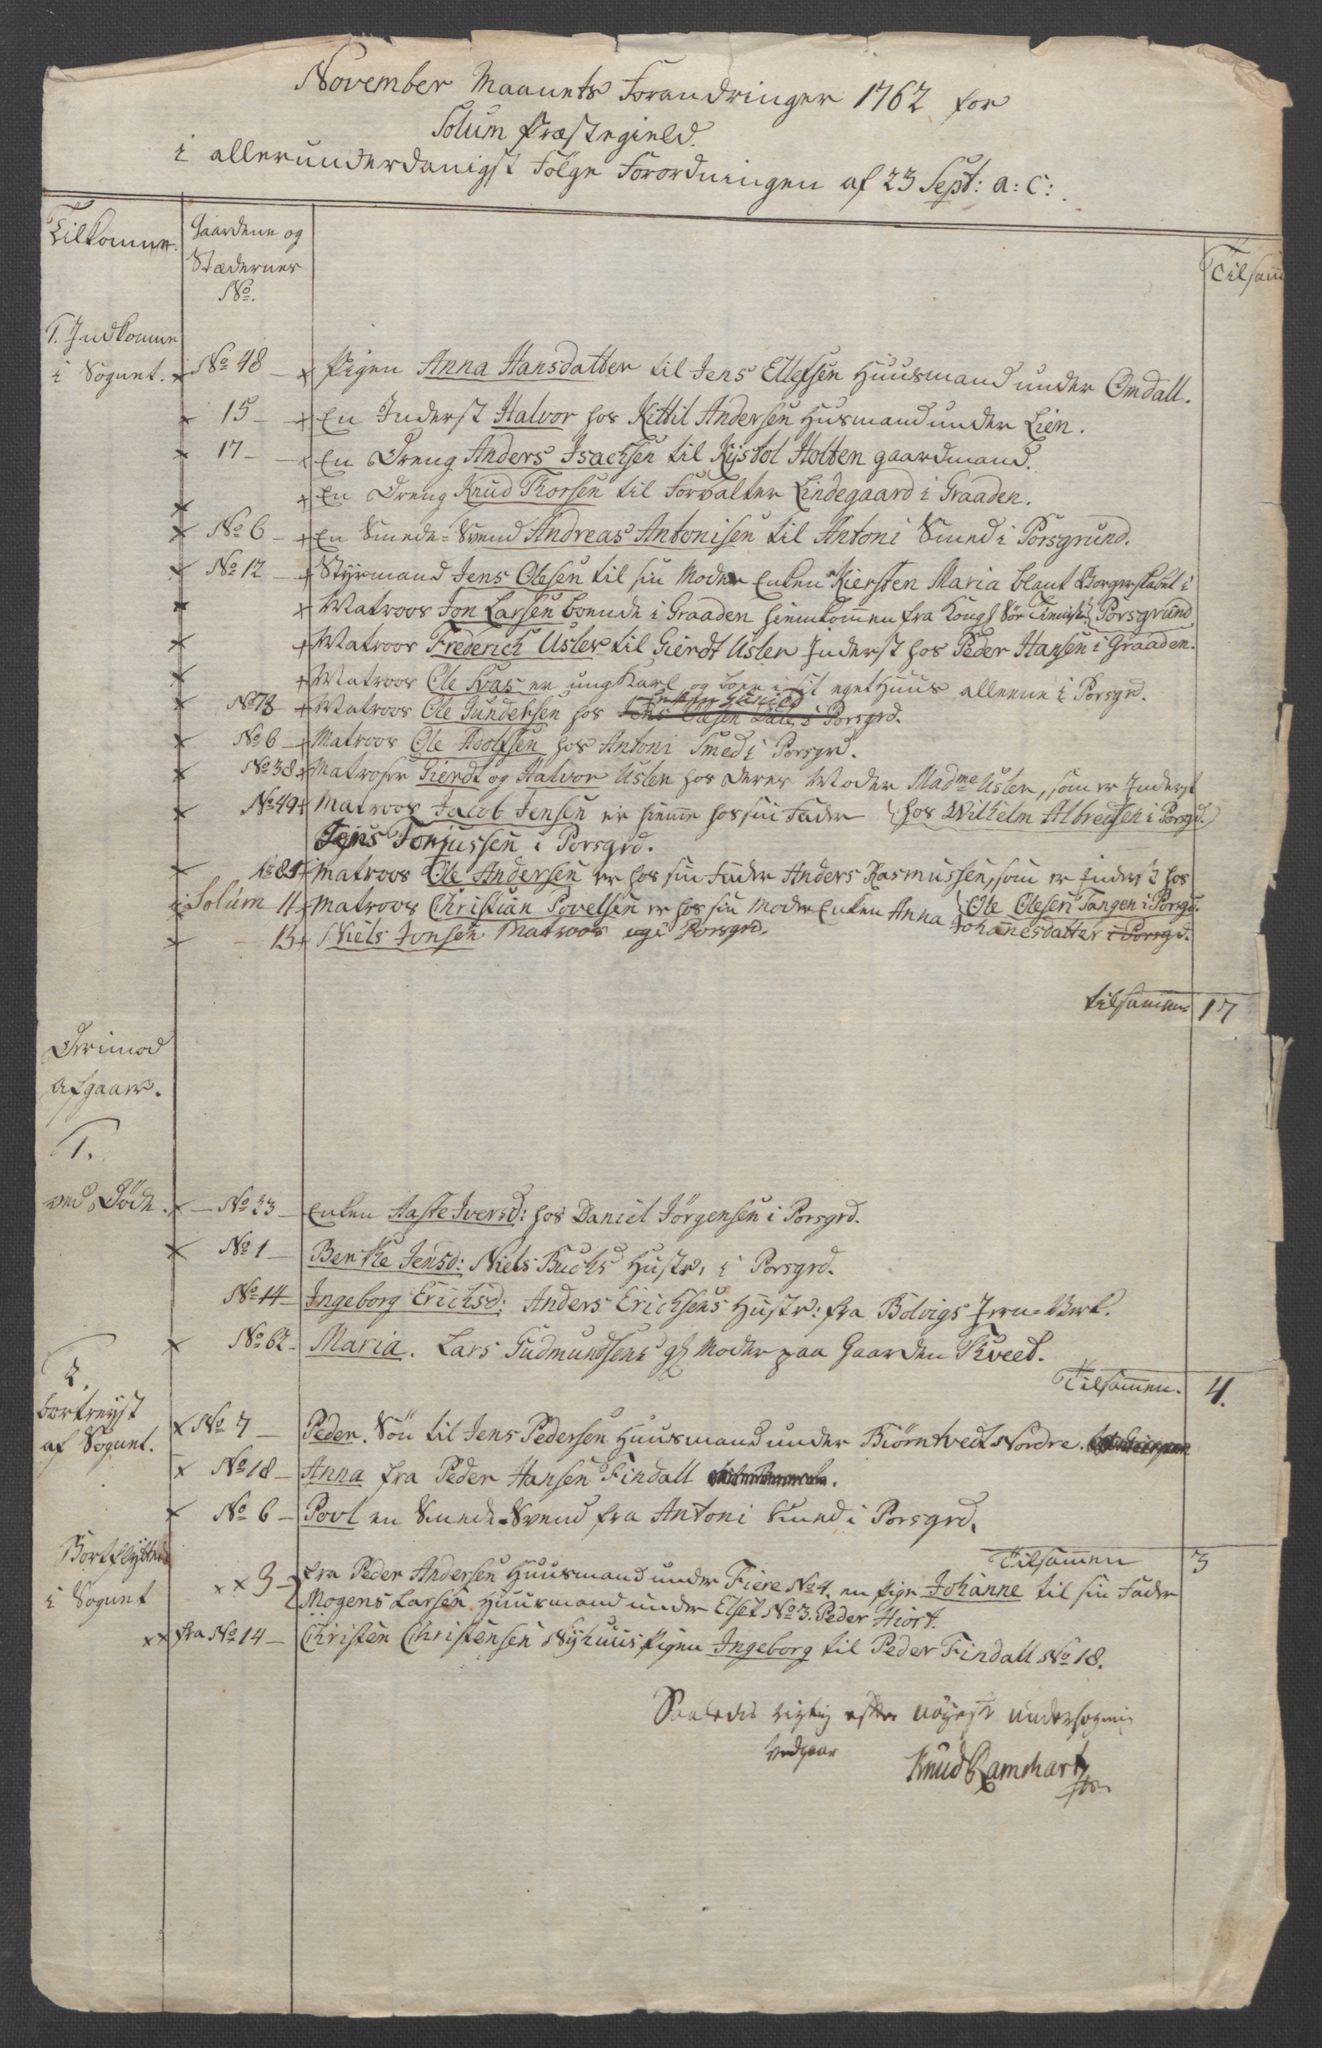 November Maanets Forandringer 1762 for
Solum Præstegield.
i allerunderdanigst Følge Forordningen af 23 Sept: a: c:
Tilkomne. Gaardene og Stædernes No. Tilsam
1. Indkomne
i Sognet. x No 48 – x Pigen Anna Hansdatter til Jens Ellefsen Huusmand under Omdall.
x 15 – x En Inderst Halvor hos Kittil Andersen Husmand under Lien.
x 17 – x En Dreng Anders Isachsen til Kystol Holten gaardmand.
x x En Dreng Knud Thorsen til Forvalter Lindegaard i Graaden.
x No 6 – x En Smede-Svend Andreas Antonisen til Antoni Smed i Porsgrund.
x No 12 – x Styrmand Jens Olesen til sin Moder Enken Kiersten Maria blant Borgerskabet i
x x Matroos Jon Larsen boende i Graaden hiemkommen fra Kongl Søe Tieniste Porsgrund
x x Matroos Frederich Usler til Gierdt Usler Inderst hos Peder Hansen i Graaden.
x x Matroos Ole Hvas er ung Karl og boer i sit eget Huus alleene i Porsgrd.
Enken Gunild
x No 78 – x Matroos Ole Gundersen hos Jens Olesen Dale i Porsgrd.
x No 6 – x Matroos Ole Adolfsen hos Antoni Smed i Porsgrd.
x No 38 x Matroser Gierdt og Halvor Uslen hos deres Moder Madme Uslen, som er Inderst
x No 49 x Matroos Jacob Jensen er hiemme hos sin Fader (hos Wilhelm Albretsen i Porsgrd.)
Jens Tonjussen i Porsgrd.
x No 81 x Matroos Ole Andersen er hos sin Fader Anders Rasmussen, som er Inderst hos
i Solum 11 x Matroos Christian Povelsen er hos sin Moder Enken Anna (Ole Olesen Tangen i Porsgd.
x – 13 x Niels Jonsen Matroos i Porsgrd. Johanesdatter i Porsgd.
tilsammen 17
Derimod
afgaaer.
1.
ved Døde. x – No 23 – Enken Aaste Iversd: hos Daniel Jørgensen i Porsgrd.
x No 1 – Benthe Jensd: Niels Buchs Hustr, i Porsgrd.
No 14 – Ingeborg Erichsd: Anders Erichsens Hustr: fra Bolvigs Jern-Verk.
x No 62 – Maria. Lars Gudmundsens gl Moder paa Gaarden Kveet.
Tilsammen. 4.
2.
bortreyst
af Sognet. x No 7 – Peder. Søn til Jens Pedersen Huusmand under Biørntvedt Nordre.
x No 18 – Anna fra Peder Hansen Findall
x No 6 – Povl en Smede-Svend fra Antoni Smed i Porsgrd.
Tilsammen 3
Bortflyttede
i Sognet x x 3 – fra Peder Andersen Huusmand under Fiere No 4. en Pige Johanne til sin Fader
Mogens Larsen Huusmand under Elset No 3. Peder Hiort.
xx fra No 14 – Christen Christensen Nyhuus Pigen Ingeborg til Peder Findall No 18.
Saaledes rigtig efter nøyeste undersøgning
vedgaar
Knud Ramshart